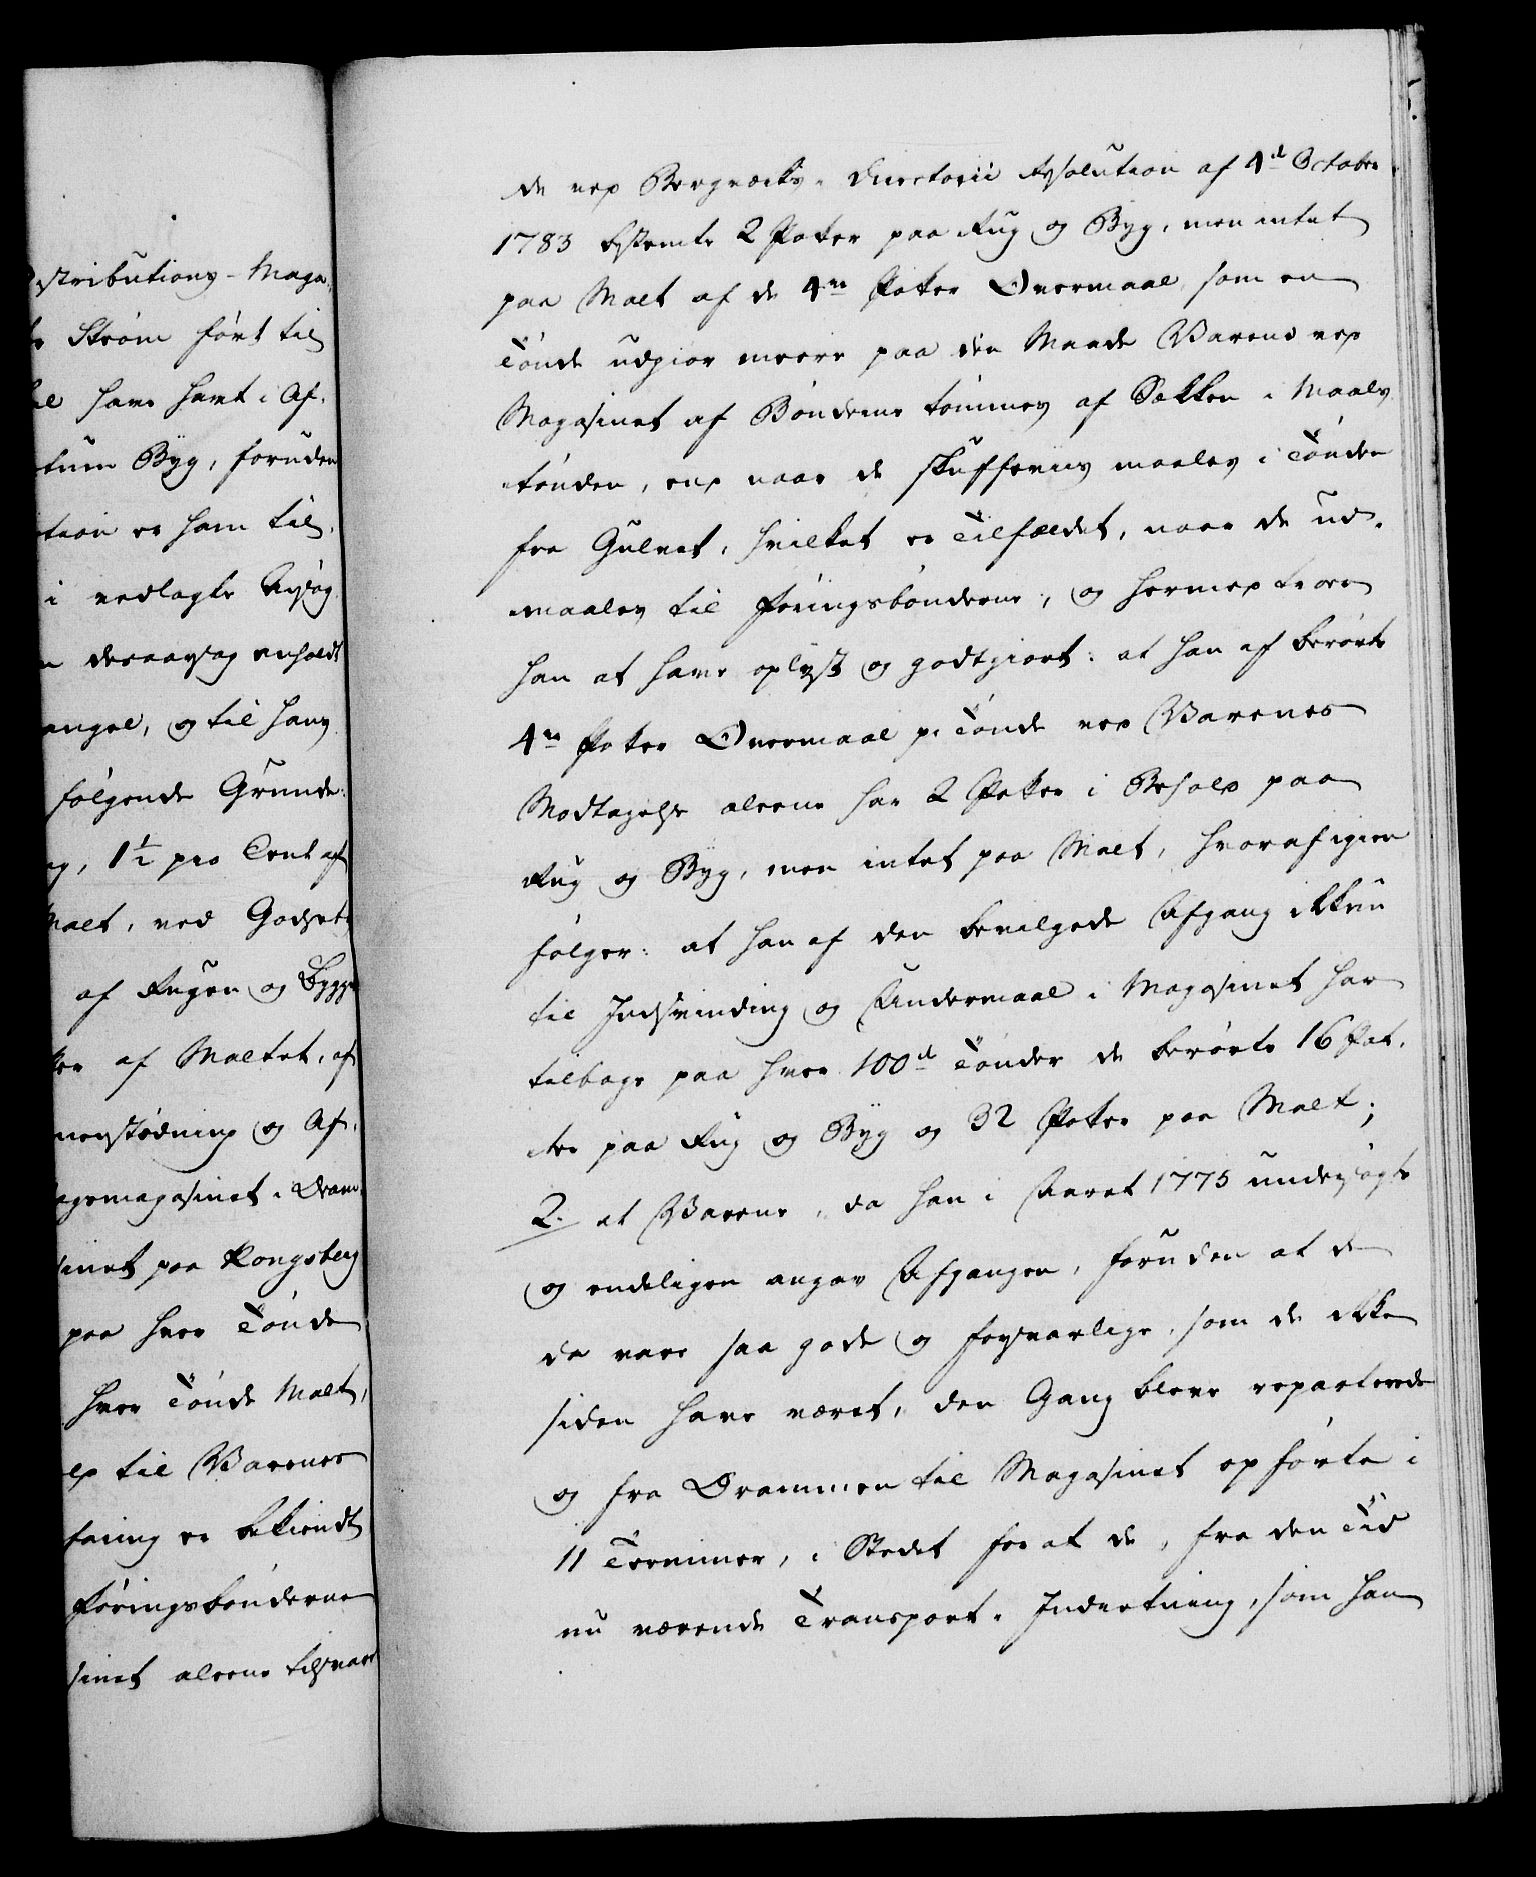 stributions-Maga-
Strøm ført til
have havt i Af-
tum Byg, foruden
tion er ham til
i vedlagte Ansøg
desaarsag anholdt
angel, og til hans
følgende Grunde:
1½ pro Cent af
Malt, ved Godsets
af Rugen og Bygget
af Maltet, af
Af-
magasinet i Dram-
sinet paa Kongsberg
paa hver Tønde
hver Tønde Malt,
til Varenes
faring er bekiendt
Føringsbønderne
sinet aleene tilsvare
de ved Bergværks-Directorii Resolution af 4de October
1783 bestemte 2 Potter paa Rug og Byg, men intet
paa Malt af de 4re Potter Overmaal, som en
Tønde udgiør meere paa den Maade Varene ved
Magasinet af Bønderne tømmes af Sækken i Maals
tønden, end naar de skufleviis maales i Tønden
fra Gulvet, hvilket er Tilfældet, naar de ud-
maales til Føringsbønderne, og hermed troer
han at have oplyst og godtgiort: at han af berørte
4re Potter Overmaal pr Tønde ved Varenes
Modtagelse aleene har 2 Potter i Behold paa
Rug og Byg, men intet paa Malt, hvoraf igien
følger: at han af den bevilgede Afgang ikkun
til Indsvinding og Undermaal i Magasinet har
tilbage paa hver 100de Tønder de berørte 16 Pot-
ter paa Rug og Byg og 32 Potter paa Malt;
2. at Varene, da han i Aaret 1775 undersøgte
og endeligen angav Afgangen, foruden at de
da vare saa gode og forsvarlige, som de ikke
siden have været, den Gang bleve reparterede
og fra Drammen til Magasinet opførte i
11 Terminer, i Stedet for at de, fra den Tid
nu værende Transport-Indretning, som han